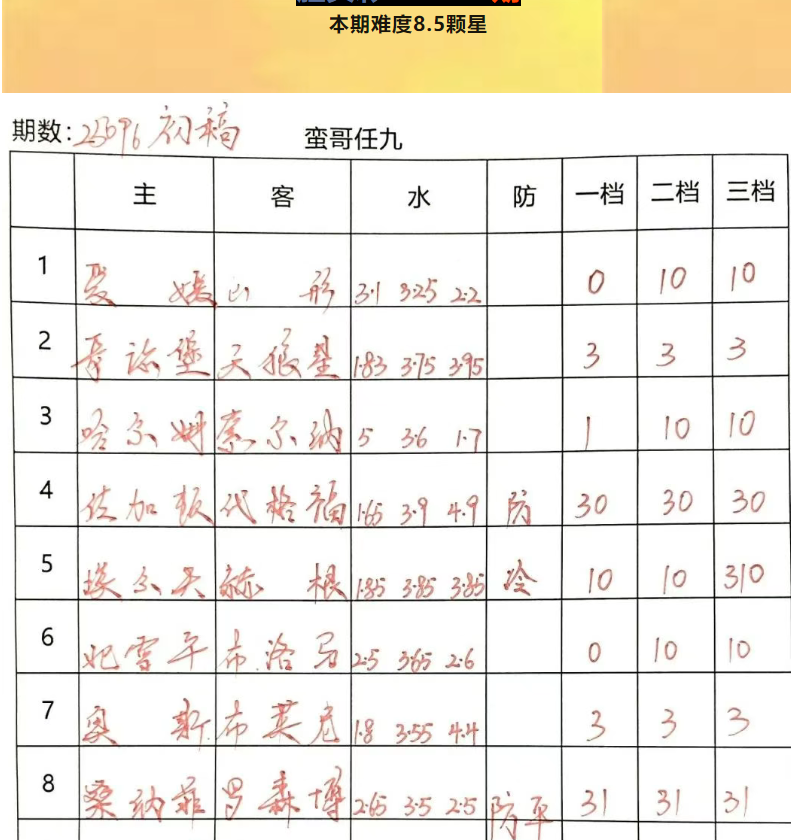 本期难度8.5颗星
期数: 25096 初稿 蛮哥任九
主 客 水 防 一档 二档 三档
1 爱媛 山形 3.1 3.25 2.2 0 10 10
2 哥德堡 天狼星 1.83 3.75 3.95 3 3 3
3 哈尔姆 索尔纳 5 3.6 1.7 1 10 10
4 佐加顿 代格福 1.65 3.9 4.9 防 30 30 30
5 埃尔夫 赫根 1.85 3.85 3.85 冷 10 10 310
6 妃雪平 布洛马 2.5 3.65 2.6 0 10 10
7 奥斯 布莱尼 1.8 3.55 4.4 3 3 3
8 桑纳菲 罗森博 2.65 3.5 2.5 防平 31 31 31